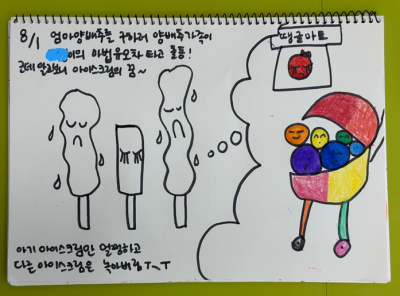 8/1 엄마양배추를 구하러 양배추가족이
이의 마법유모차 타고 출동!
근데 알고보니 아이스크림의 꿈~
땡글마트
아기 아이스크림만 멀쩡하고
다른 아이스크림은 녹아버림ㅜㅜ